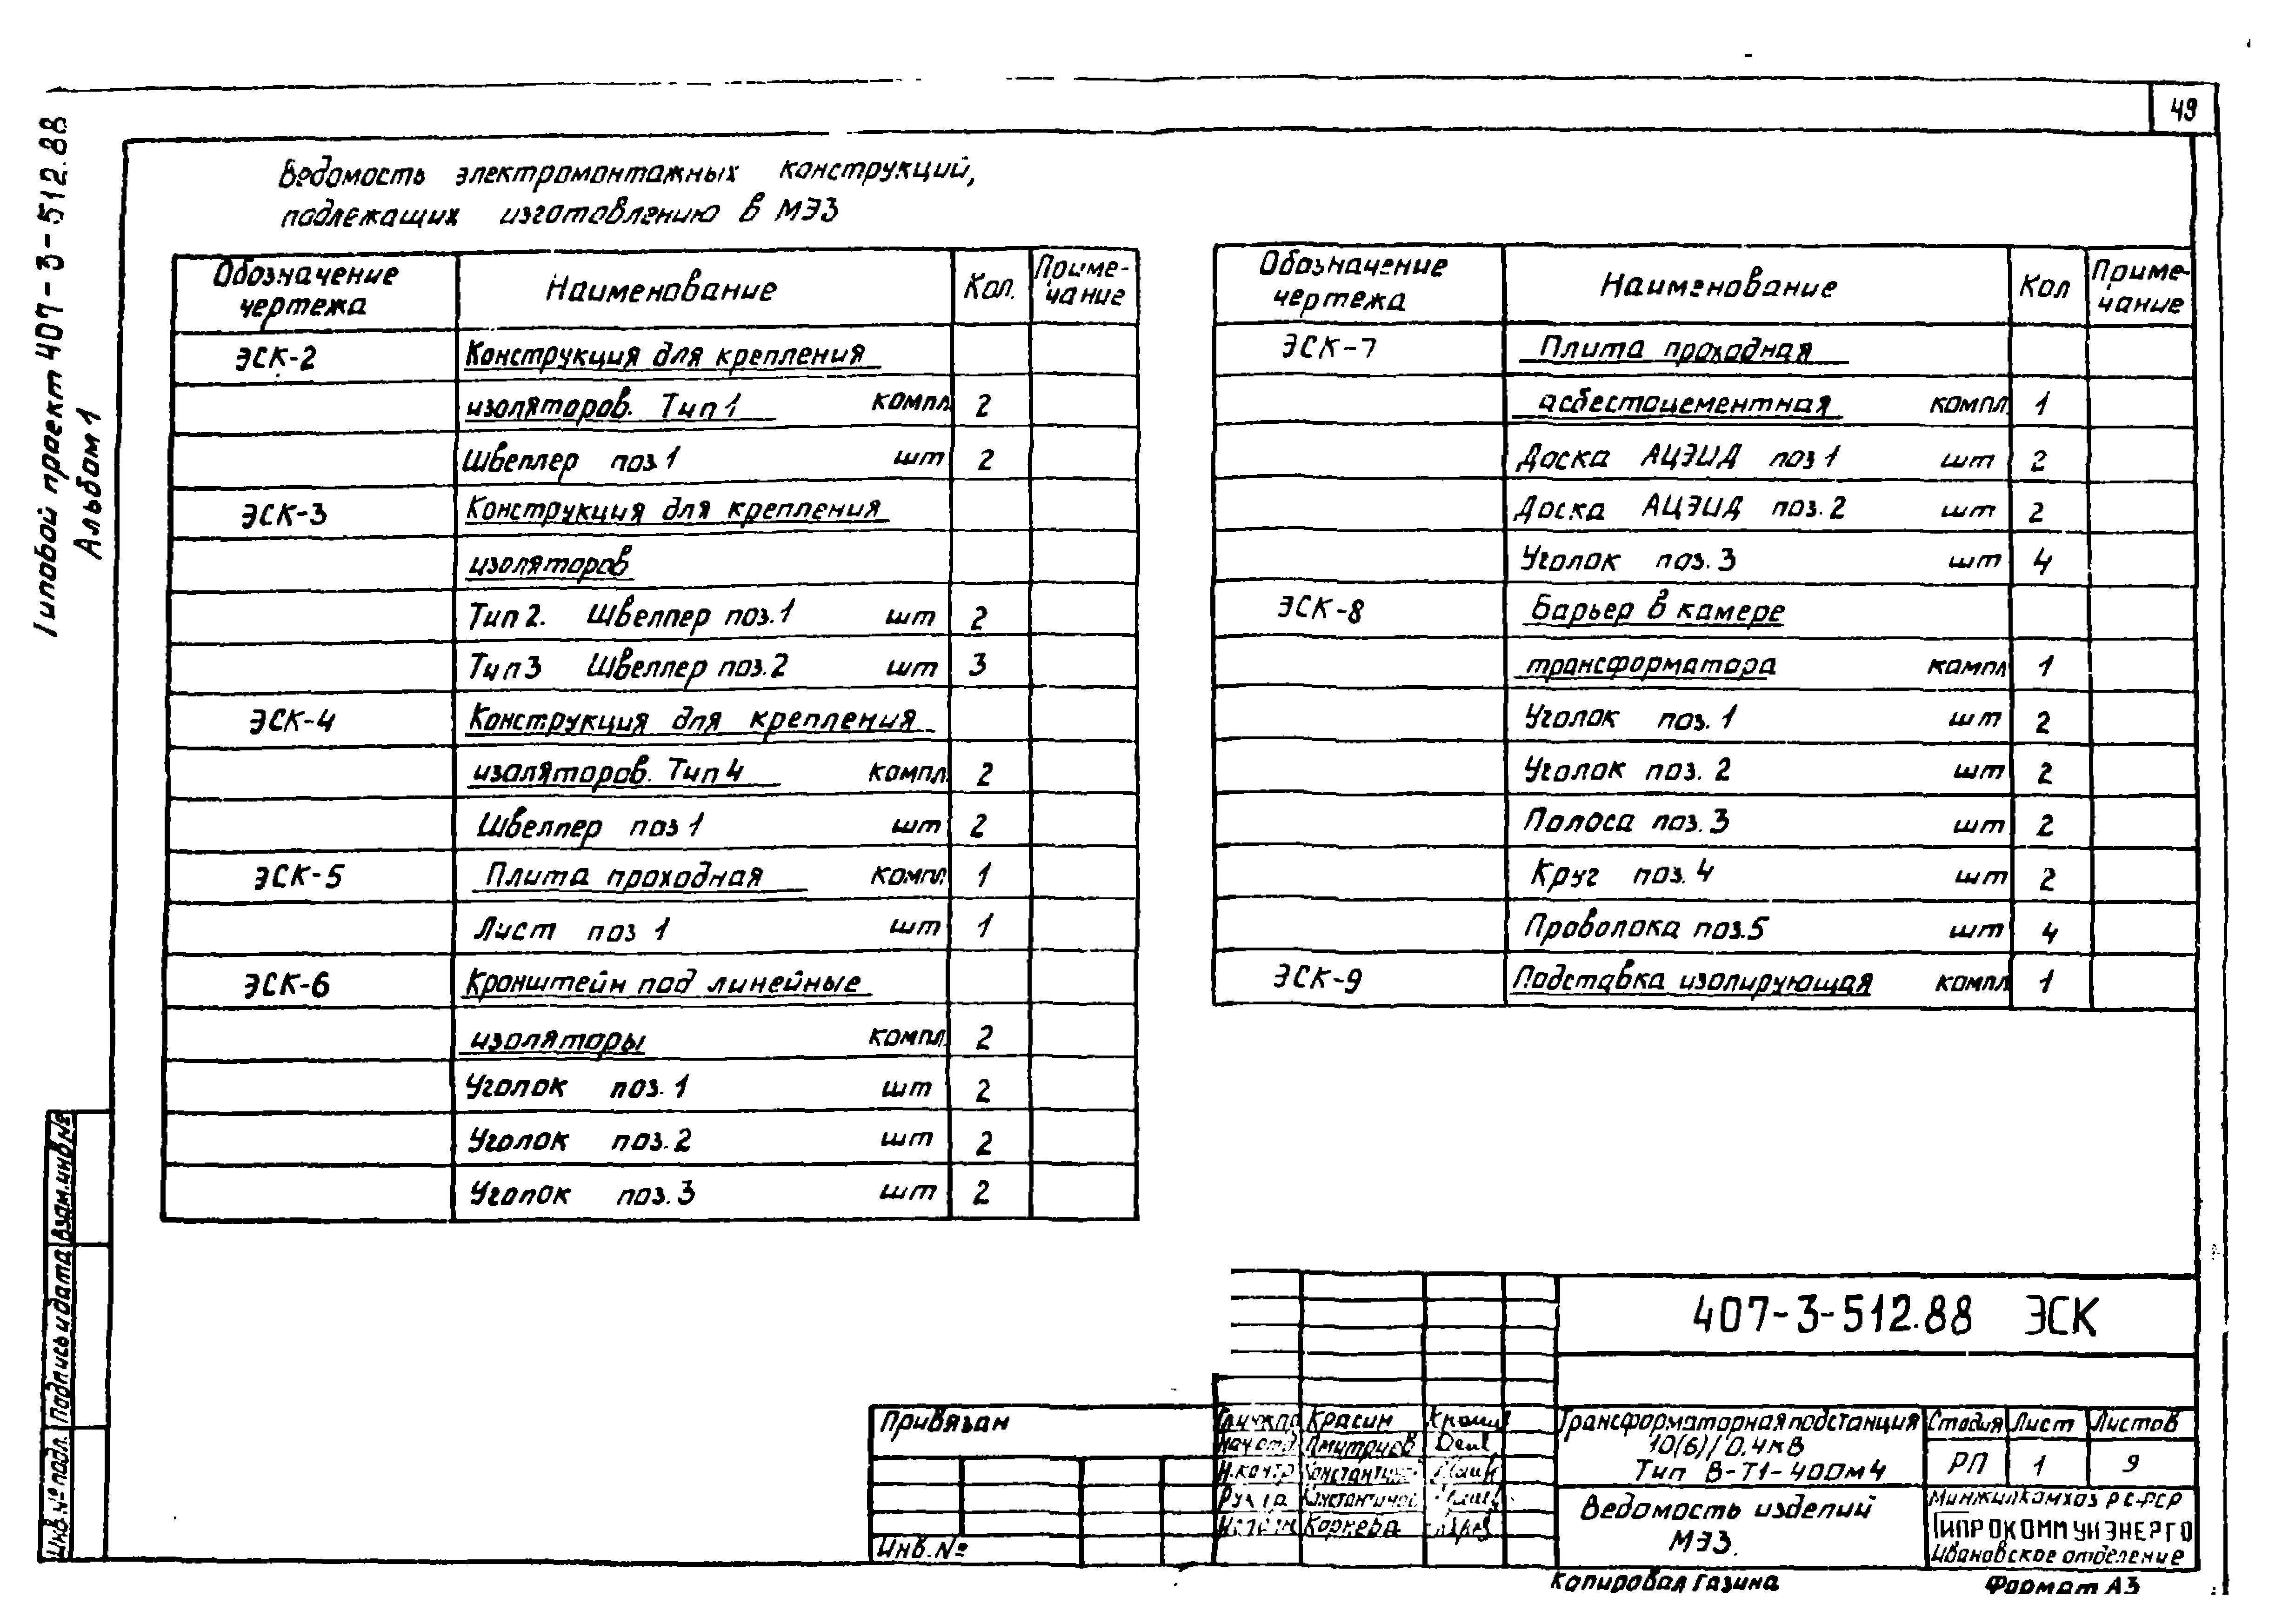 49
Типовой проект 407-3-512.88
Альбом 1
Ведомость электромонтажных конструкций,
подлежащих изготовлению в МЭЗ
Обозначение чертежа Наименование Кол. Приме-чание
ЭСК-2 Конструкция для крепления
изоляторов. Тип 1 компл. 2
Швеллер поз.1 шт 2
ЭСК-3 Конструкция для крепления
изоляторов
Тип 2. Швеллер поз.1 шт 2
Тип 3 Швеллер поз.2 шт 3
ЭСК-4 Конструкция для крепления
изоляторов. Тип 4 компл. 2
Швеллер поз 1 шт 2
ЭСК-5 Плита проходная компл. 1
Лист поз 1 шт 1
ЭСК-6 Кронштейн под линейные
изоляторы компл. 2
Уголок поз.1 шт 2
Уголок поз.2 шт 2
Уголок поз.3 шт 2
Обозначение чертежа Наименование Кол Приме-чание
ЭСК-7 Плита проходная
асбестоцементная компл. 1
Доска АЦЭИД поз 1 шт 2
Доска АЦЭИД поз.2 шт 2
Уголок поз.3 шт 4
ЭСК-8 Барьер в камере
трансформатора компл 1
Уголок поз.1 шт 2
Уголок поз.2 шт 2
Полоса поз.3 шт 2
Круг поз.4 шт 2
Проволока поз.5 шт 4
ЭСК-9 Подставка изолирующая компл 1
Взам.инв.№
Подпись и дата
Инв.№ подл.
407-3-512.88 ЭСК
Привязан
Инв.№
Красин
Дмитриев
Н.контр
Рук.гр.
Коркева
Трансформаторная подстанция
10(6)/0,4кВ
Тип В-Т1-400м4
Стадия Лист Листов
РП 1 9
Ведомость изделий
МЭЗ.
Минжилкомхоз РСФСР
ГИПРОКОММУНЭНЕРГО
Ивановское отделение
Копировал Газина
Формат А3